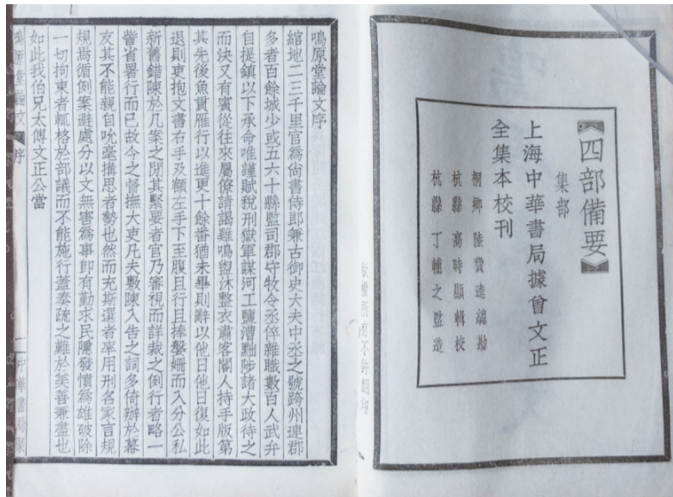 《四部備要》
集部
上海中華書局據曾文正
全集本校刊
桐鄉 陸費逵總勘
杭縣 高時顯輯校
杭縣 丁輔之監造
版權所有不許翻印
鳴原堂論文序
綰地二三千里官爲尙書侍郎兼右御史大夫中丞之號跨州連郡
多者百餘城少或五六十縣監司郡守牧令丞倅雜職數百人武弁
自提鎮以下承命唯謹賦稅刑獄軍謀河工鹽漕黜陟諸大政待之
而決又有賓從往來屬僚請謁雞鳴盥沐整衣肅客閽人持手版第
其先後魚貫雁行以進更十餘番猶未畢則辭以他日他日復如此
退則吏抱文書右手及顙左手下至腹且行且捧盤姍而入分公私
新舊錯陳於几案之閒其緊要者官乃審視而詳裁之例行者略一
訾省署行而已故今之督撫大吏凡夫敷陳入告之詞多倚辦於幕
友其不能親自吮毫搆思者勢也然而充斯選者率用刑名家言規
規爲循例案避處分以文無害爲事即有勤求民隱發憤爲雄破除
一切拘束者輒格於部議而不能施行蓋奏疏之難於美善兼盡也
如此我伯兄太傅文正公當
鳴原堂論文 序
一 中華書局聚